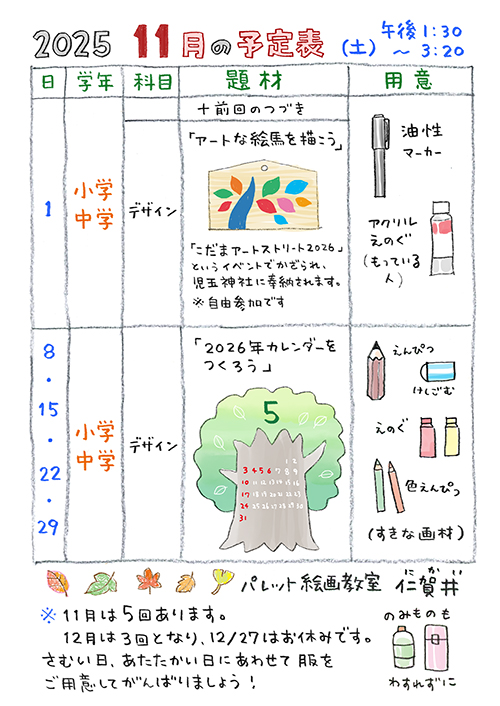 2025 11月の予定表 (土) 午後1:30
～3:20
日 学年 科目 題材 用意
+前回のつづき
1
小学
中学
デザイン
「アートな絵馬を描こう」
「こだまアートストリート2026」
というイベントでかざられ、
児玉神社に奉納されます。
※自由参加です
油性
マーカー
アクリル
えのぐ
(もっている
人)
8
・
15
・
22
・
29
小学
中学
デザイン
「2026年カレンダーを
つくろう」
5
1 2
3 4 5 6 7 8 9
10 11 12 13 14 15 16
17 18 19 20 21 22 23
24 25 26 27 28 29 30
31
えんぴつ
けしごむ
えのぐ
色えんぴつ
(すきな画材)
パレット絵画教室 仁賀井
にかい
※11月は5回あります。
12月は3回となり、12/27はお休みです。
さむい日、あたたかい日にあわせて服を
ご用意してがんばりましょう!
のみものも
わすれずに